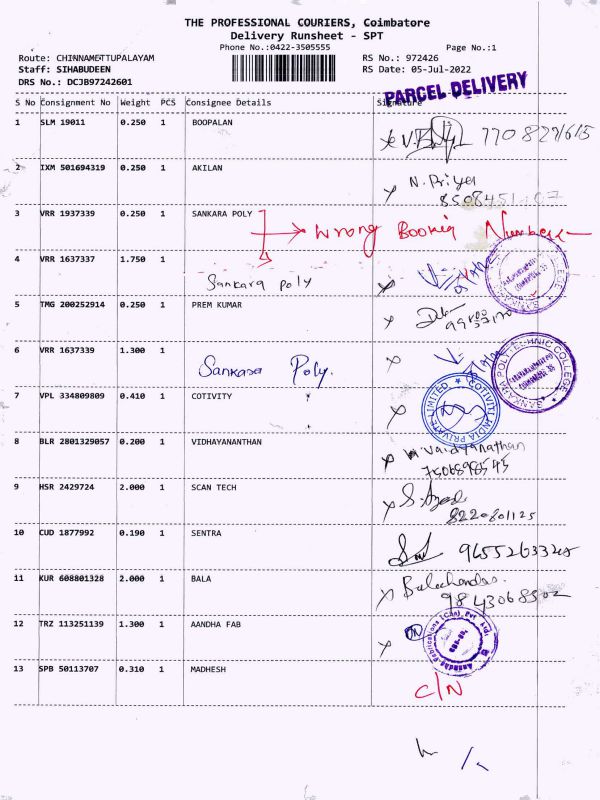 THE PROFESSIONAL COURIERS, Coimbatore
Delivery Runsheet - SPT
Phone No.:0422-3505555
Page No.:1
Route: CHINNAMETTUPALAYAM
RS No.: 972426
Staff: SIHABUDEEN
RS Date: 05-Jul-2022
DRS No.: DCJB97242601
PARCEL DELIVERY
S No Consignment No Weight PCS Consignee Details Signature
1 SLM 19011 0.250 1 BOOPALAN
2 IXM 501694319 0.250 1 AKILAN
N. Priya
3 VRR 1937339 0.250 1 SANKARA POLY
Wrong Booking Number
4 VRR 1637337 1.750 1
Sankara poly
5 TMG 200252914 0.250 1 PREM KUMAR
6 VRR 1637339 1.300 1
Sankara Poly.
SANKARA POLYTECHNIC COLLEGE
7 VPL 334809809 0.410 1 COTIVITY
COTIVITI INDIA PRIVATE LIMITED
8 BLR 2801329057 0.200 1 VIDHAYANANTHAN
Vaidyanathan
9 HSR 2429724 2.000 1 SCAN TECH
8220801125
10 CUD 1877992 0.190 1 SENTRA
11 KUR 608801328 2.000 1 BALA
Balachandar.
9843068502
12 TRZ 113251139 1.300 1 AANDHA FAB
13 SPB 50113707 0.310 1 MADHESH
C/N